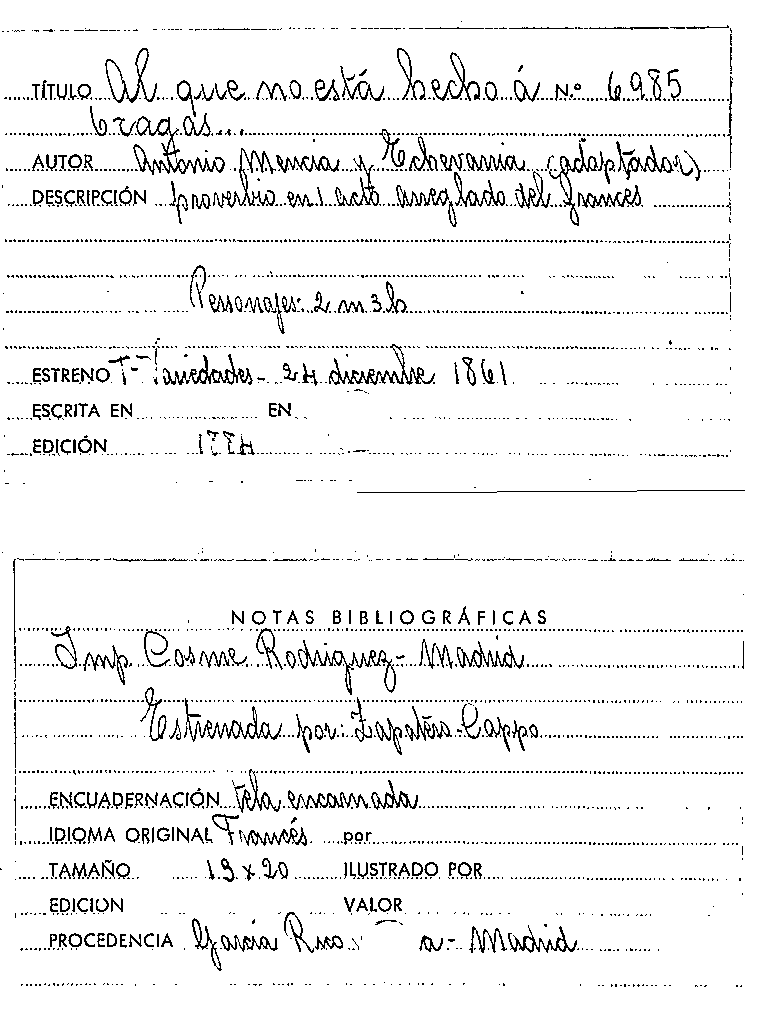 TÍTULO Al que no está hecho á N.º 6985
bragas...
AUTOR Antonio Mencia y Echevarria (adaptador)
DESCRIPCIÓN proverbio en 1 acto arreglado del francés
Personajes: 2 m 3 h
ESTRENO T- Variedades - 24 diciembre 1861
ESCRITA EN EN
EDICIÓN
NOTAS BIBLIOGRÁFICAS
Imp. Cosme Rodriguez - Madrid
Estrenada por: Zapatero - Cappo
ENCUADERNACIÓN tela encarnada
IDIOMA ORIGINAL Francés por
TAMAÑO 13 x 20 ILUSTRADO POR
EDICION VALOR
PROCEDENCIA García Rico a - Madrid